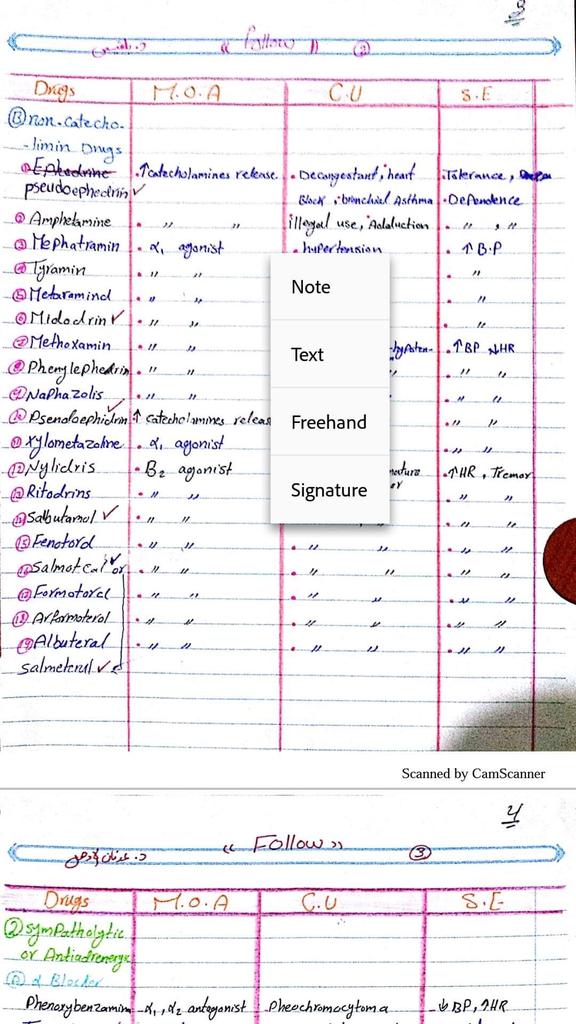 3
« Follow » ②
Drugs M.O.A C.U S.E
Ⓑ non-catecho-
-limin Drugs
① Ephedrine ↑catecholamines release. • Decongestant, heart • Tolerance,
pseudoephedrin ✓ Block • bronchial Asthma • Dependence
② Amphetamine • " " illegal use, Adduction • " , "
③ Mephatramin • α₁ agonist • hypertension • ↑ B.P
④ Tyramin • " " • "
⑤ Metaramind • " " • "
⑥ Midodrin ✓ • " " • "
⑦ Methoxamin • " " -hypoten- • ↑BP ↓HR
⑧ Phenylephedrin • " " " • " "
⑨ Naphazolis • " " • " "
⑩ Psendoephidrin ✓ ↑ catecholamines releas • " "
⑪ Xylometazoline • α₁ agonist • " "
⑫ Nylidris • B₂ agonist mature • ↑HR, Tremor
⑬ Ritodrins • " " • " "
⑭ Salbutamol ✓ • " " • " "
⑮ Fenotord • " " • " " • " "
⑯ • " " • " " • " "
⑰ Formotoral • " " • " " • " "
⑱ Arformoterol • " " • " " • " "
⑲ Albuteral • " " • " " • " "
Salmeterul ✓
Note
Text
Freehand
Signature
Scanned by CamScanner
4
« Follow » ③
Drugs M.O.A C.U S.E
② Sympatholytic
or Antiadrenergic
Ⓐ α Blocker
Phenoxybenzamin α₁, α₂ antagonist Pheochromocytoma ↓BP, ↑HR